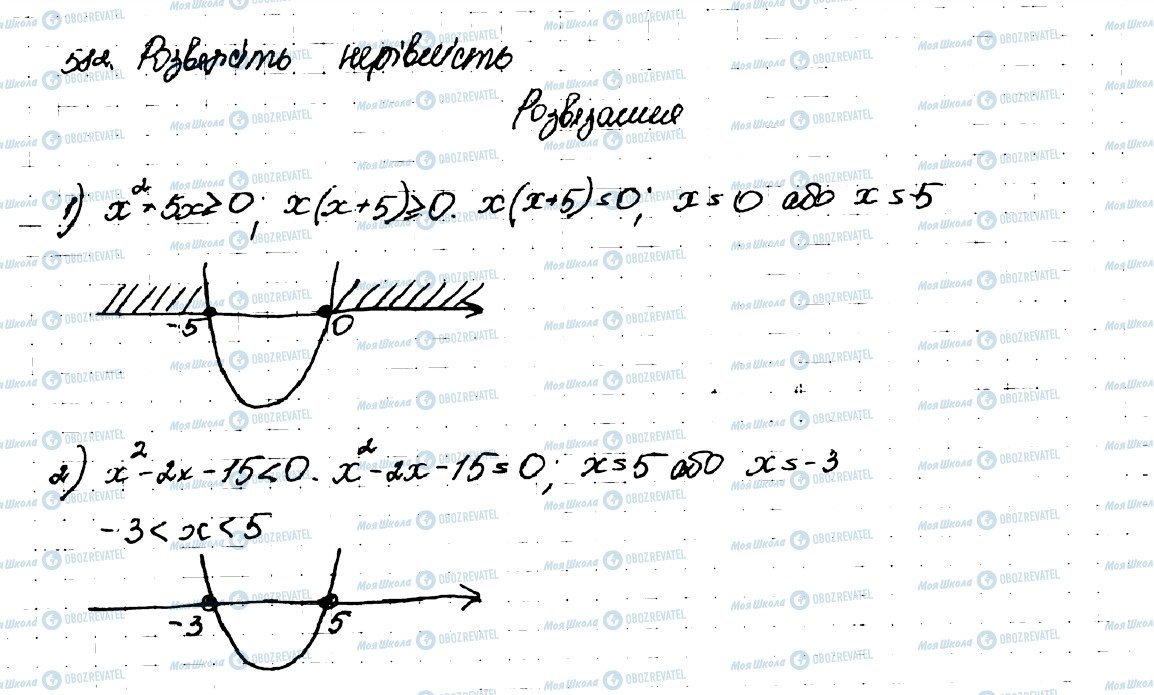 582. Розв'яжіть нерівність
Розв'язання
1) x² + 5x ≥ 0; x(x+5) ≥ 0. x(x+5) = 0; x = 0 або x = -5
-5 0
2) x² - 2x - 15 < 0. x² - 2x - 15 = 0; x = 5 або x = -3
-3 < x < 5
-3 5
Моя Школа OBOZREVATEL